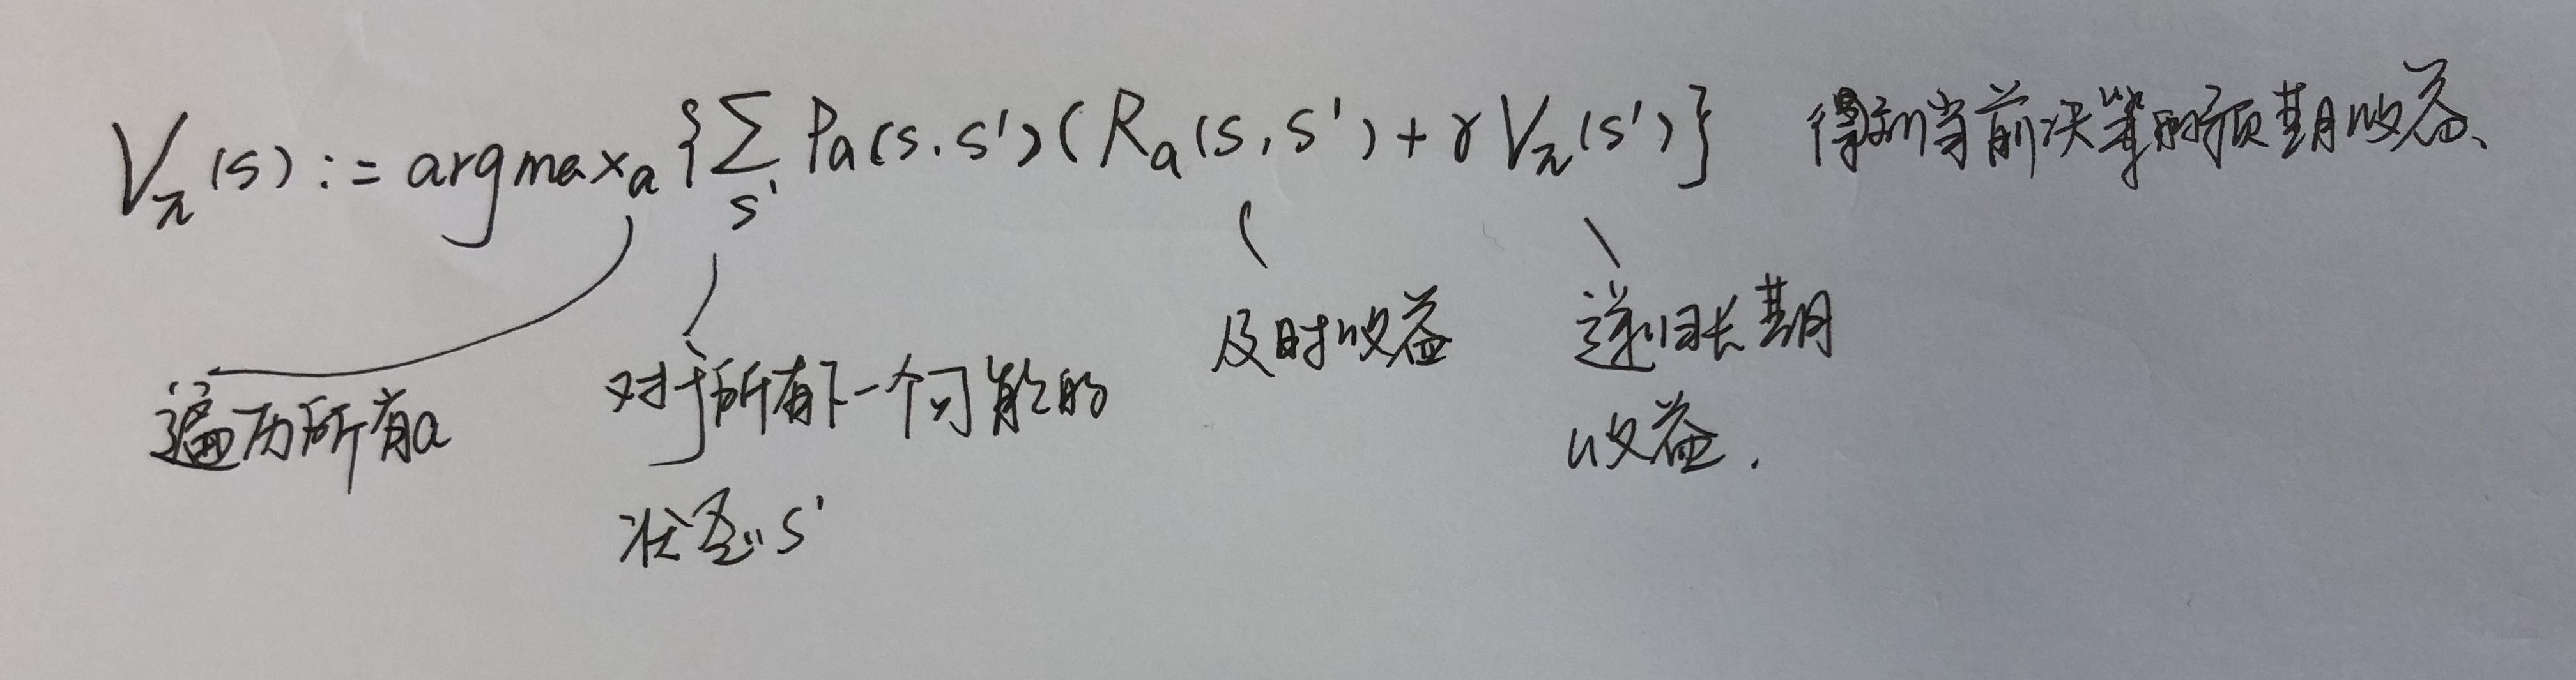 V_π(s) := argmax_a {∑_{s'} P_a(s,s')(R_a(s,s') + γV_π(s')} 得到当前决策的预期收益、
遍历所有a
对于所有下一个可能的
状态s'
及时收益
递归长期
收益.